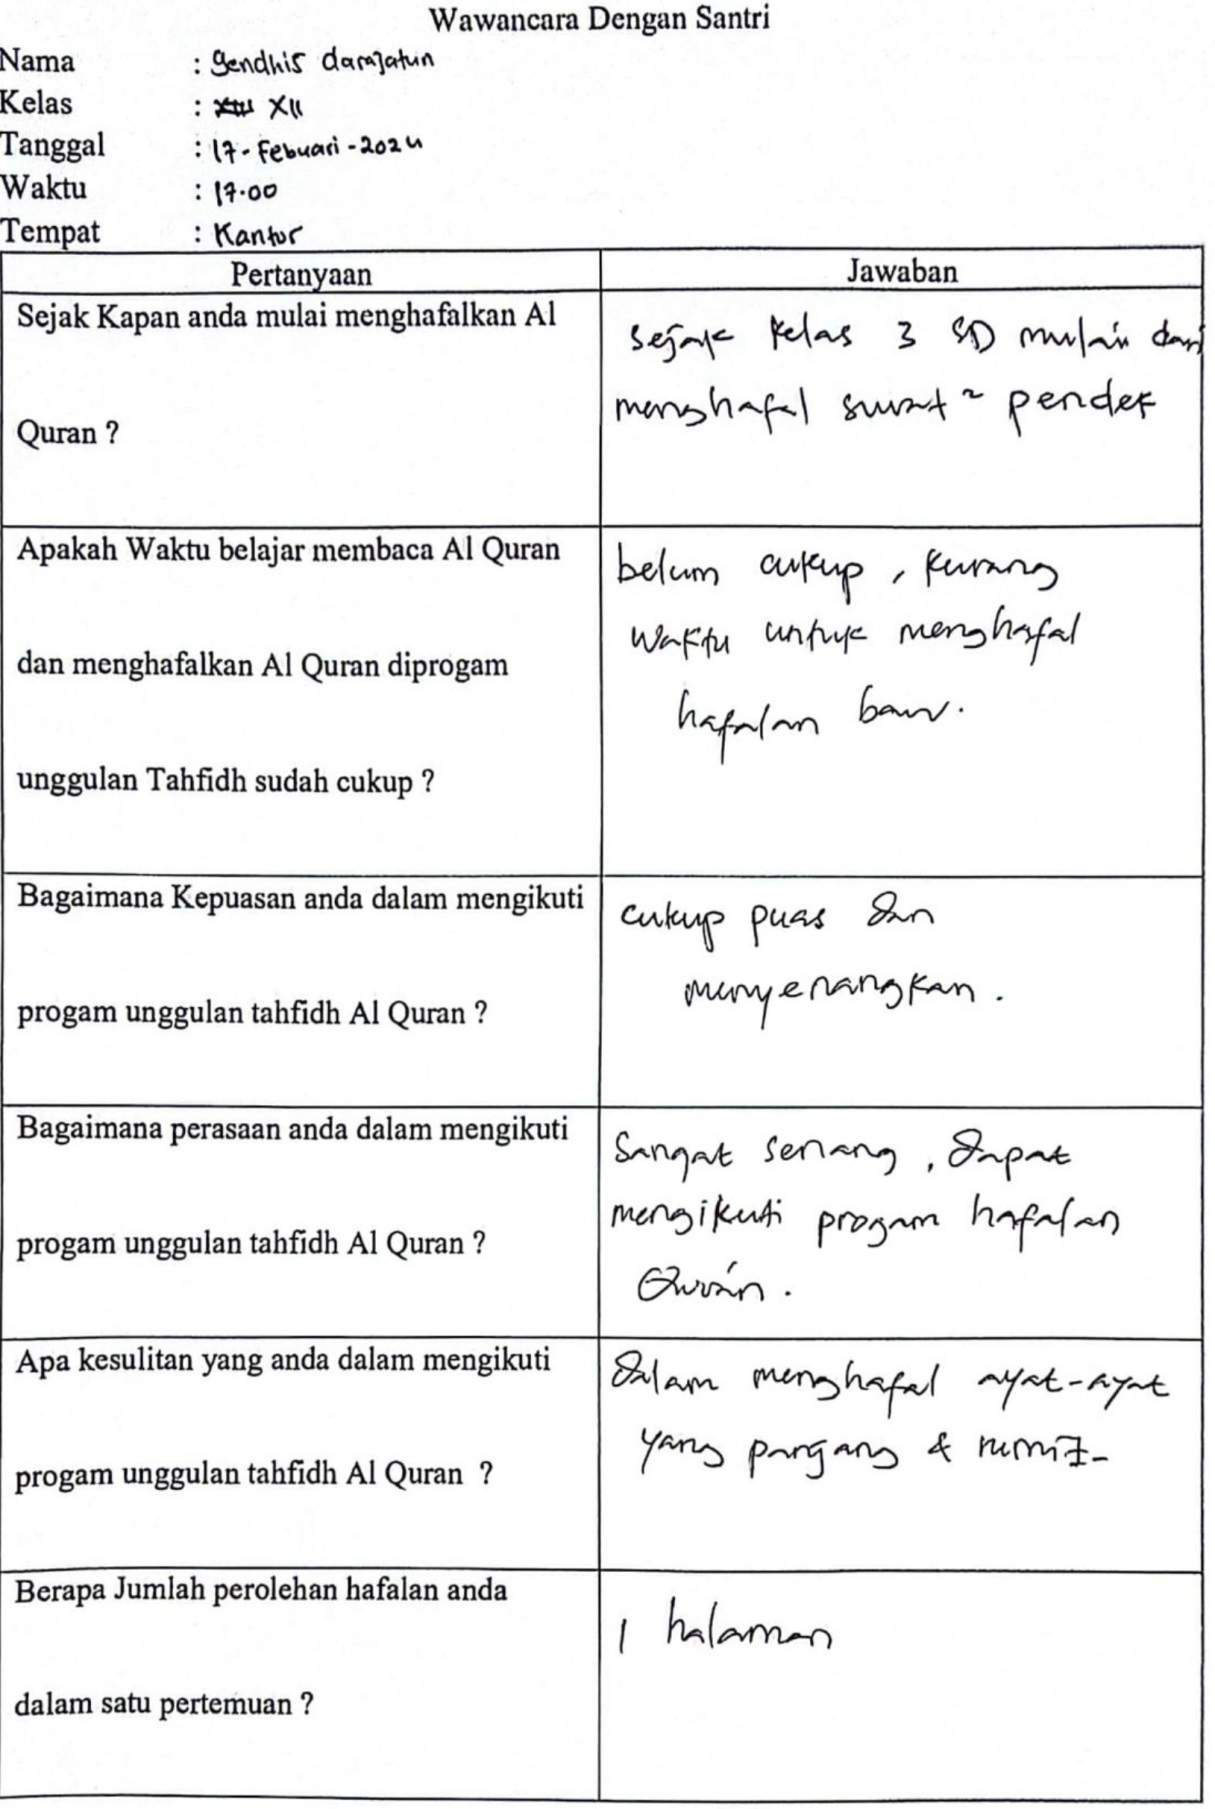 Wawancara Dengan Santri
Nama : gendhis darajatun
Kelas : XII
Tanggal : 17-Febuari-2024
Waktu : 17.00
Tempat : Kantor
Pertanyaan
Jawaban
Sejak Kapan anda mulai menghafalkan Al
Quran ?
Sejak kelas 3 SD mulai dari
menghafal surat ~ pendek
Apakah Waktu belajar membaca Al Quran
dan menghafalkan Al Quran diprogam
unggulan Tahfidh sudah cukup ?
belum cukup , kurang
waktu untuk menghafal
hafalan baru.
Bagaimana Kepuasan anda dalam mengikuti
progam unggulan tahfidh Al Quran ?
cukup puas dan
menyenangkan .
Bagaimana perasaan anda dalam mengikuti
progam unggulan tahfidh Al Quran ?
Sangat senang , dapat
mengikuti progam hafalan
Qur'an .
Apa kesulitan yang anda dalam mengikuti
progam unggulan tahfidh Al Quran ?
dalam menghafal ayat-ayat
yang panjang & rumit
Berapa Jumlah perolehan hafalan anda
dalam satu pertemuan ?
1 halaman